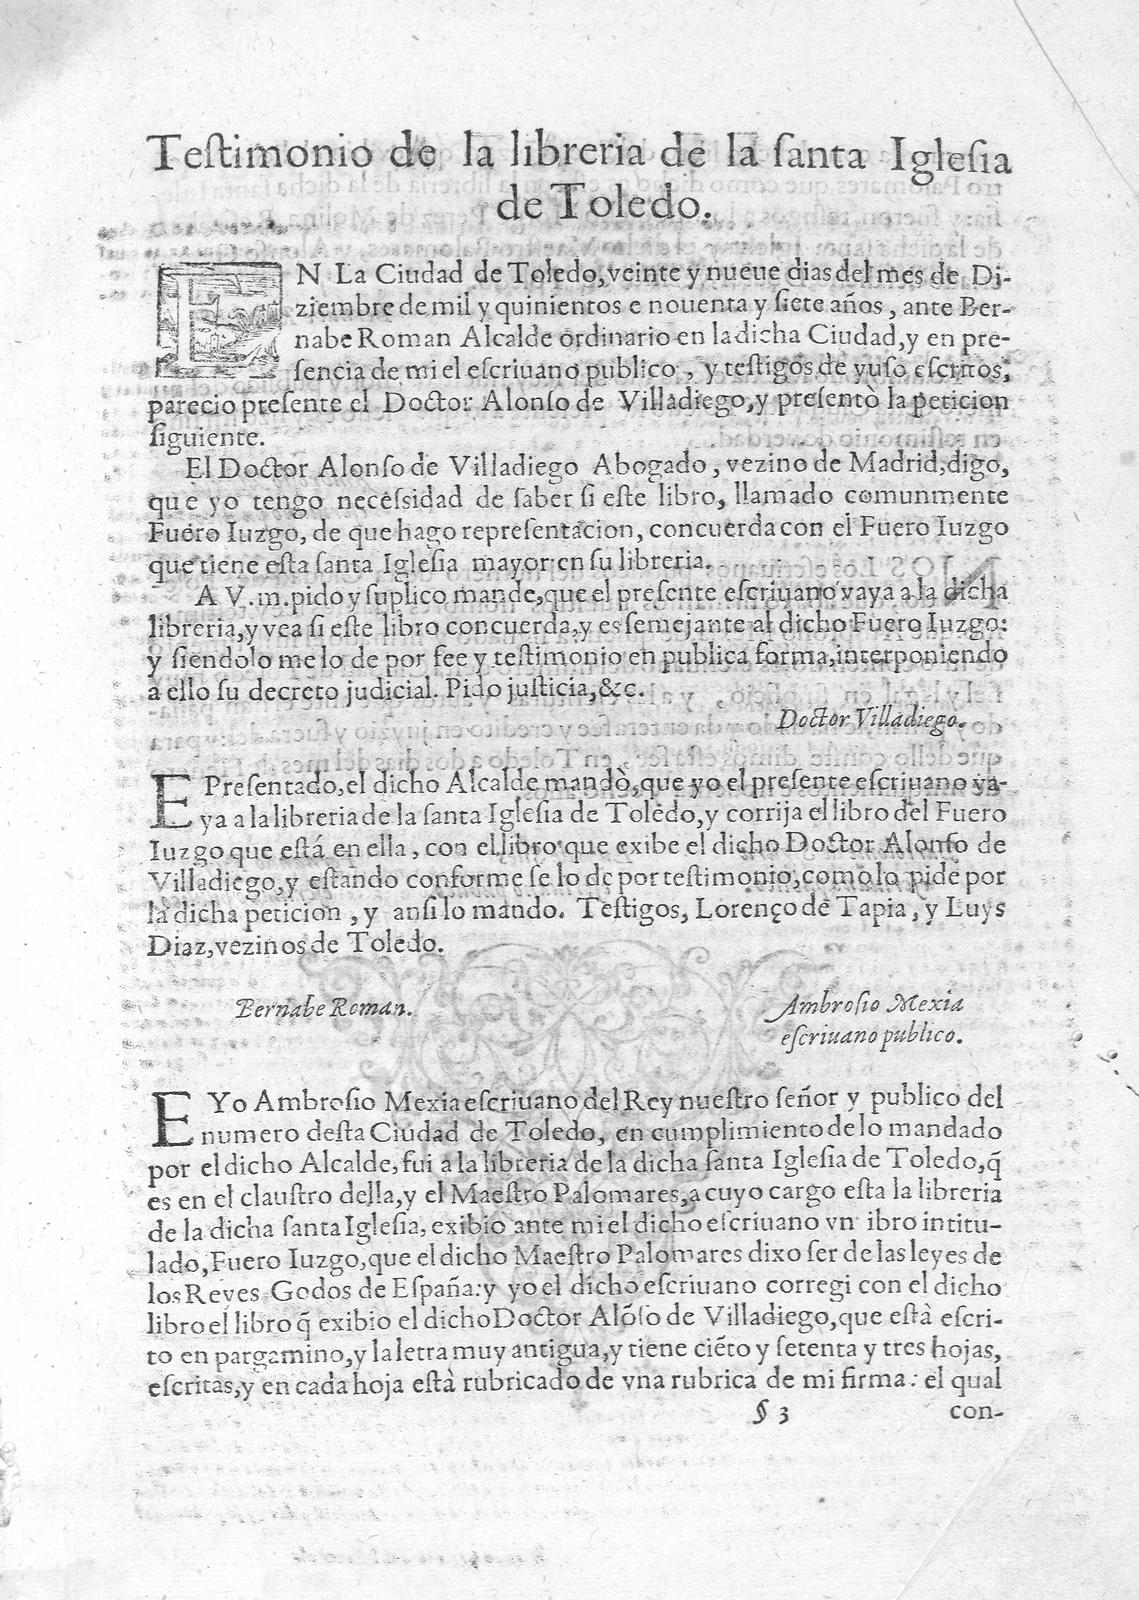 Teſtimonio de la libreria de la ſanta Igleſia
de Toledo.
EN La Ciudad de Toledo, veinte y nueue dias del mes de Di-
ziembre de mil y quinientos e nouenta y ſiete años, ante Ber-
nabe Roman Alcalde ordinario en la dicha Ciudad, y en pre-
ſencia de mi el eſcriuano publico, y teſtigos de yuſo eſcritos,
parecio preſente el Doctor Alonſo de Villadiego, y preſentò la peticion
ſiguiente.
El Doctor Alonſo de Villadiego Abogado, vezino de Madrid, digo,
que yo tengo neceſsidad de ſaber ſi eſte libro, llamado comunmente
Fuero Iuzgo, de que hago repreſentacion, concuerda con el Fuero Iuzgo
que tiene eſta ſanta Igleſia mayor en ſu libreria.
A V. m. pido y ſuplico mande, que el preſente eſcriuano vaya a la dicha
libreria, y vea ſi eſte libro concuerda, y es ſemejante al dicho Fuero Iuzgo:
y ſiendolo me lo de por fee y teſtimonio en publica forma, interponiendo
a ello ſu decreto judicial. Pido juſticia, &c.
Doctor Villadiego.
E Preſentado, el dicho Alcalde mandò, que yo el preſente eſcriuano va-
ya a la libreria de la ſanta Igleſia de Toledo, y corrija el libro del Fuero
Iuzgo que eſtá en ella, con el libro que exibe el dicho Doctor Alonſo de
Villadiego, y eſtando conforme ſe lo de por teſtimonio, como lo pide por
la dicha peticion, y anſi lo mando. Teſtigos, Lorenço de Tapia, y Luys
Diaz, vezinos de Toledo.
Bernabe Roman.
Ambroſio Mexia
eſcriuano publico.
E Yo Ambroſio Mexia eſcriuano del Rey nueſtro ſeñor y publico del
numero deſta Ciudad de Toledo, en cumplimiento de lo mandado
por el dicho Alcalde, fui a la libreria de la dicha ſanta Igleſia de Toledo, q̃
es en el clauſtro della, y el Maeſtro Palomares, a cuyo cargo eſta la libreria
de la dicha ſanta Igleſia, exibio ante mi el dicho eſcriuano vn ibro intitu-
lado, Fuero Iuzgo, que el dicho Maeſtro Palomares dixo ſer de las leyes de
los Reyes Godos de Eſpaña: y yo el dicho eſcriuano corregi con el dicho
libro el libro q̃ exibio el dicho Doctor Alõſo de Villadiego, que eſtà eſcri-
to en pargamino, y la letra muy antigua, y tiene ciẽto y ſetenta y tres hojas,
eſcritas, y en cada hoja eſtà rubricado de vna rubrica de mi firma: el qual
§ 3 con-